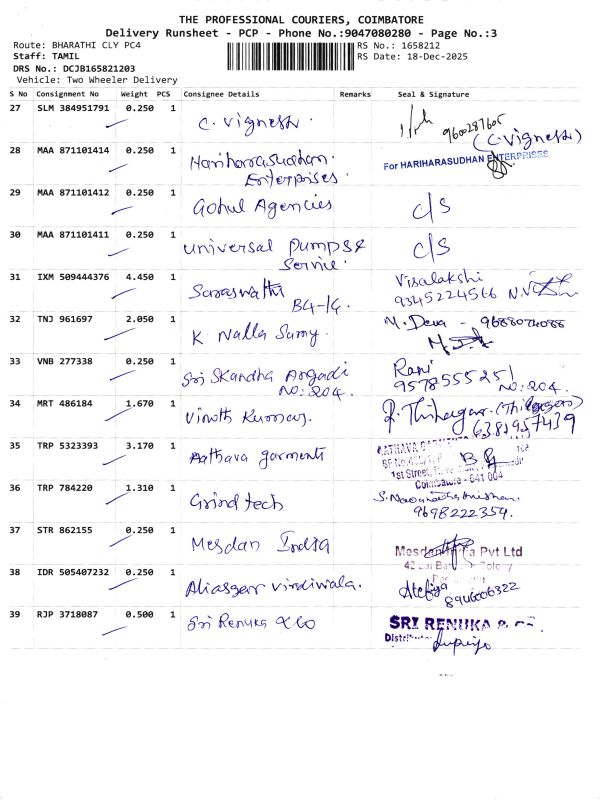 THE PROFESSIONAL COURIERS, COIMBATORE
Delivery Runsheet - PCP - Phone No.:9047080280 - Page No.:3
Route: BHARATHI CLY PC4
RS No.: 1658212
Staff: TAMIL
RS Date: 18-Dec-2025
DRS No.: DCJB165821203
Vehicle: Two Wheeler Delivery
S No Consignment No Weight PCS Consignee Details Remarks Seal & Signature
27 SLM 384951791 0.250 1 C. Vignesh. 9600287605
(C. Vignesh)
28 MAA 871101414 0.250 1 Hariharasudhan
Enterprises. For HARIHARASUDHAN ENTERPRISES
29 MAA 871101412 0.250 1 Gohul Agencies C/S
30 MAA 871101411 0.250 1 Universal Pumps &
Service. C/S
31 IXM 509444376 4.450 1 Saraswathi Visalakshi
B4-14. 9345224566
32 TNJ 961697 2.050 1 K. Nalla Samy. M. Deva - 9688074088
33 VNB 277338 0.250 1 Sri Skandha Angadi Rani
NO: 204. 9578555251 NO: 204.
34 MRT 486184 1.670 1 Vinoth Kumar. (Thilagar)
6381957439
35 TRP 5323393 3.170 1 Aathava garments AATHAVA
1st Street,
Coimbatore - 641 004
36 TRP 784220 1.310 1 Grind tech
9698222354.
37 STR 862155 0.250 1 Mesdan India Mesdan India Pvt Ltd
38 IDR 505407232 0.250 1 Aliasgar virdiwala. Colony
8946006322
39 RJP 3718087 0.500 1 Sri Renuka & Co SRI RENUKA &
Supriya